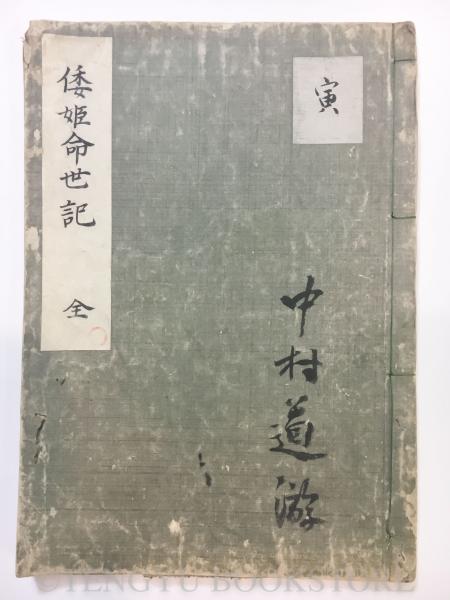 寅
中村道游
倭姫命世記 全
©TENGYU BOOKSTORE